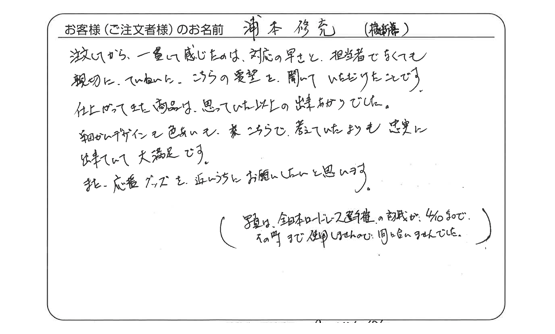 お客様(ご注文者様)のお名前 浦本修充
注文してから、一貫して感じたのは、対応の早さと、担当者でなくても
親切に、ていねいに、こちらの要望を、聞いていただけたことです
仕上がってきた商品は、思っていた以上の出来あがりでした。
細かいデザインも色あいも、こちらで、考えていたよりも忠実に
出来ていて大満足です。
また、応援グッズを、近いうちにお願いしたいと思います。
(写真は、全日本ロードレース選手権の初戦が、4/10まで、
その時まで使用しませんので、間に合いませんでした。)